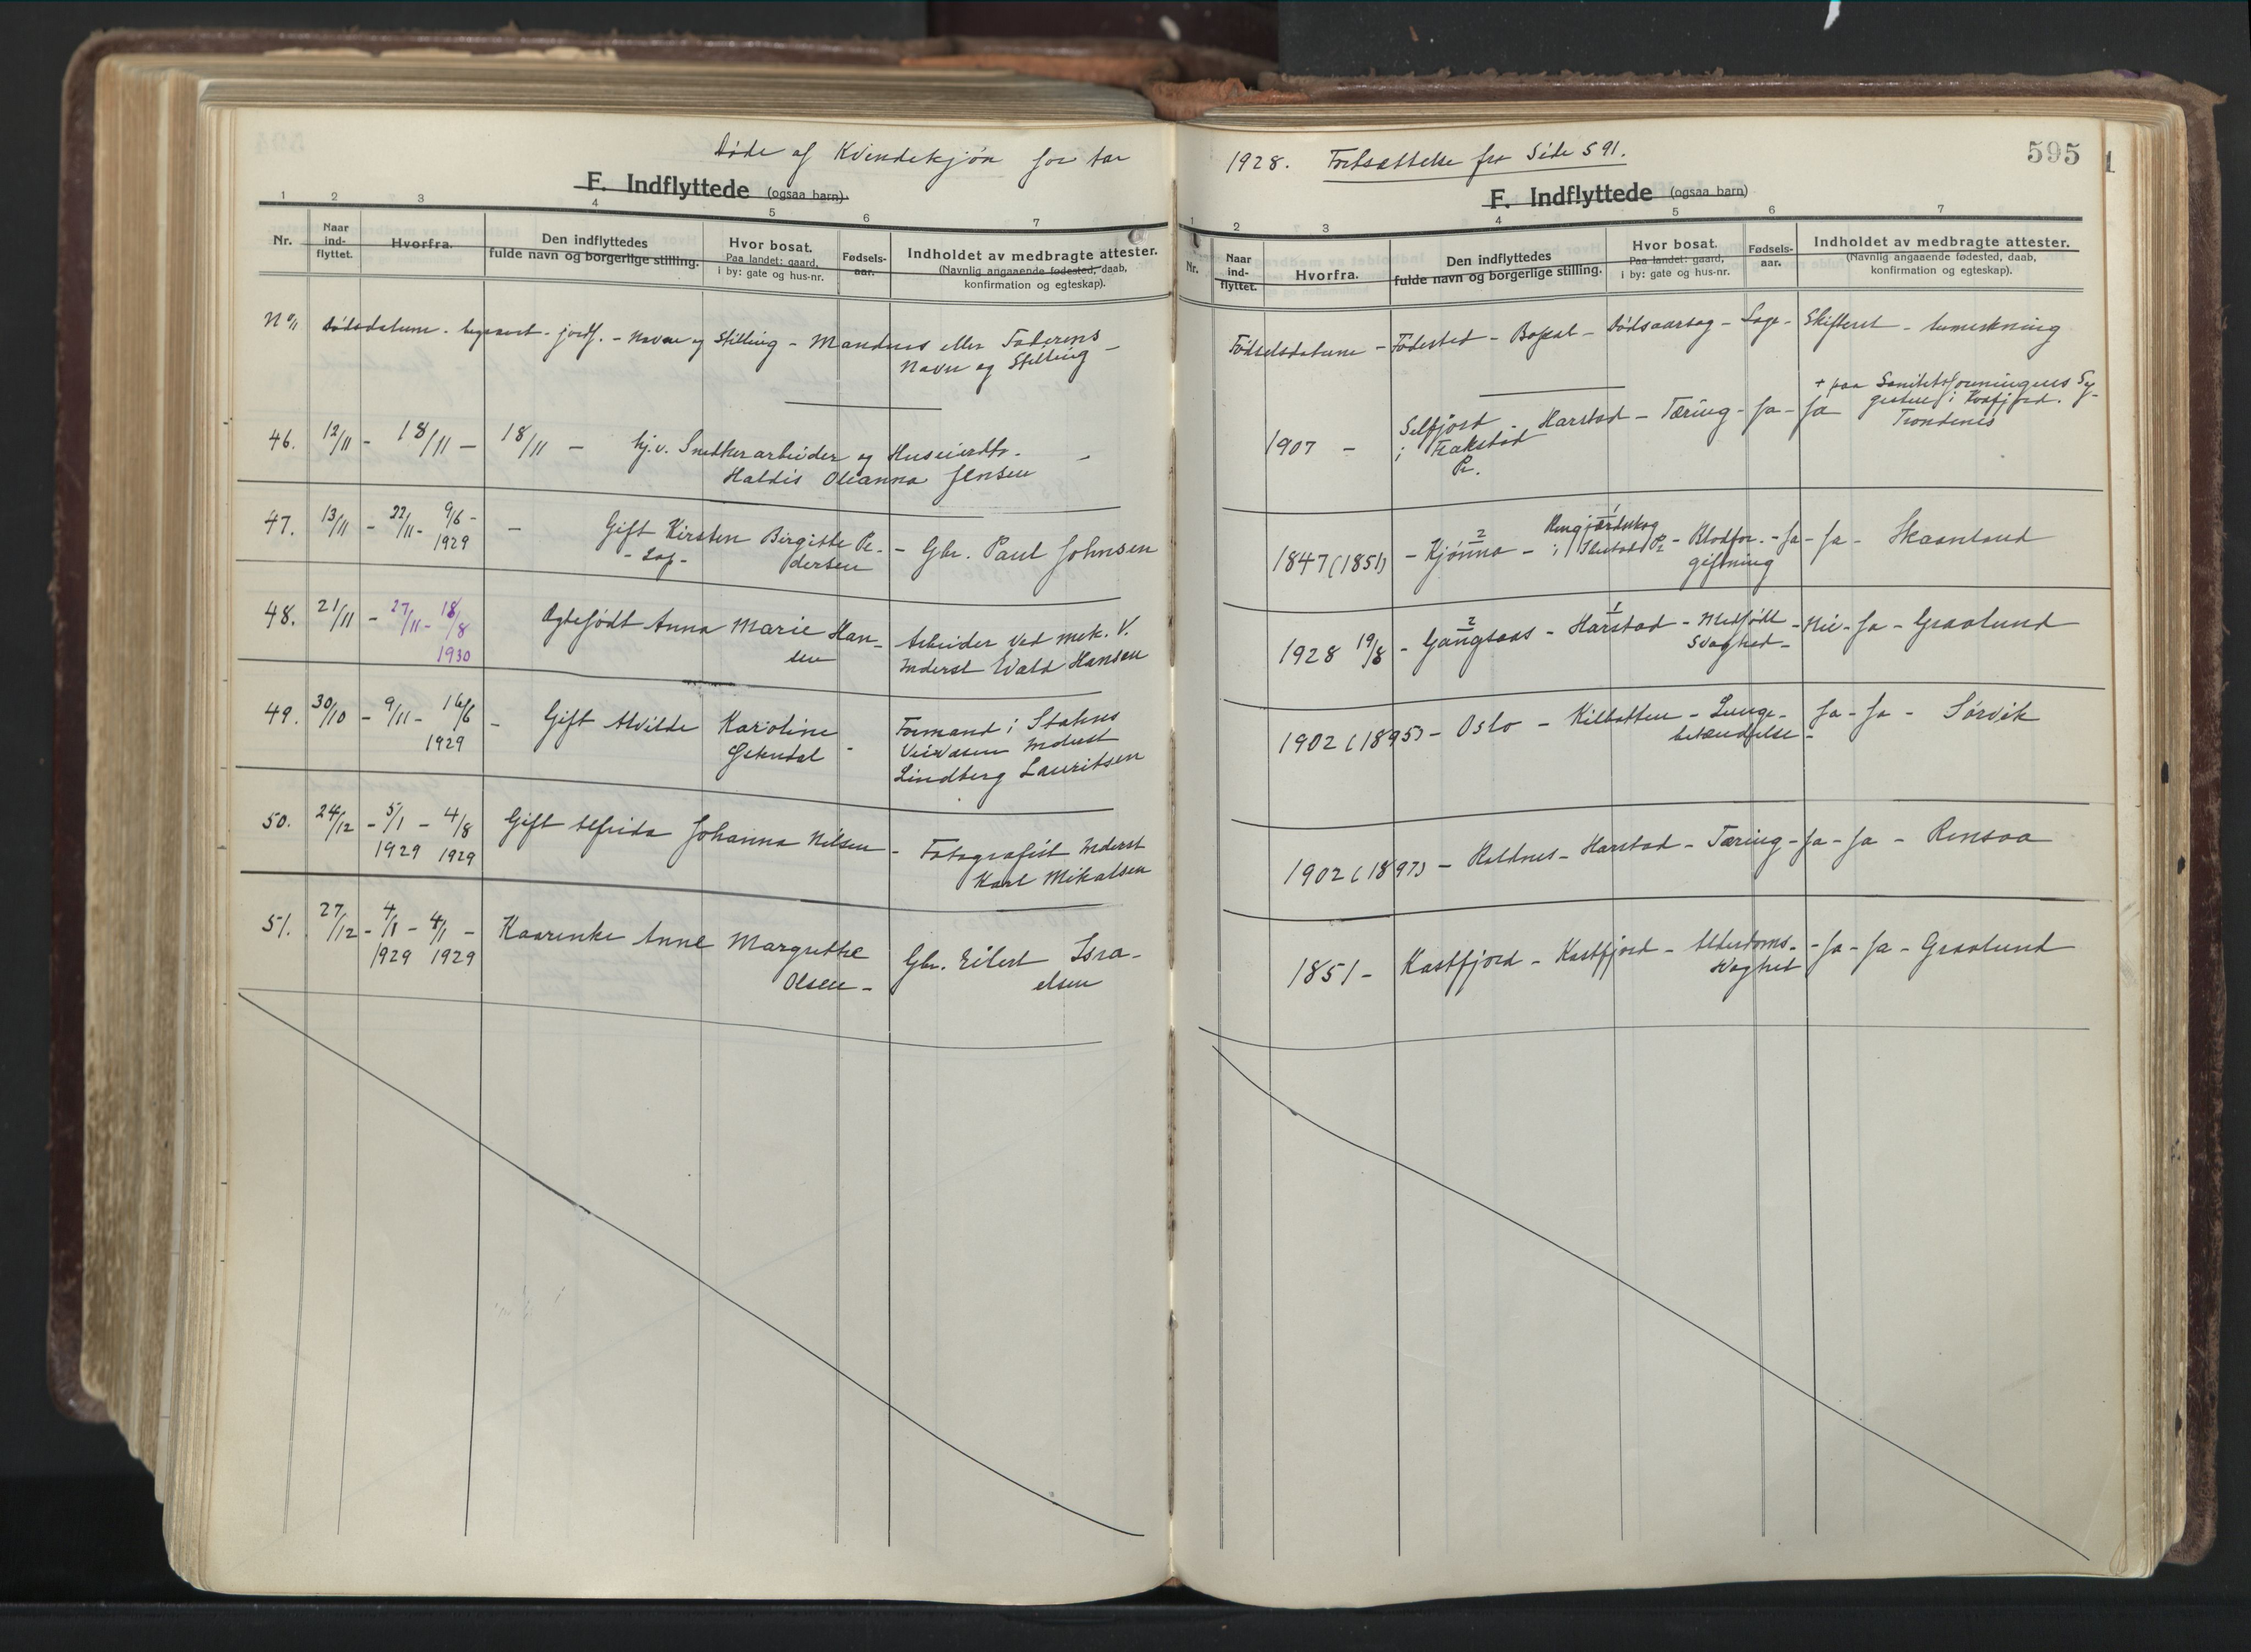 Døde af Kvindekjøn for Aar
F. Indflyttede (ogsaa barn).
1 2 3 4 5 6 7
Nr.
Naar ind-flyttet.
Hvorfra.
Den indflyttedes fulde navn og borgerlige stilling.
Hvor bosat. Paa landet: gaard, i by: gate og hus-nr.
Fødsels-aar.
Indholdet av medbragte attester. (Navnlig angaaende fødested, daab, konfirmation og egteskap).
Dødsdatum - begravet - jordf. - Navn og Stilling - Mandens eller Faderens
Navn og Stilling -
46. 12/11 - 18/11 - 18/11 - hj.v. Snedkerarbeider og
Haldis Oleanna Jensen
47. 13/11 - 22/11 - 9/6 - 1929 - Gift Kirsten Birgitte Pe-
dersen - Lap - - Gbr. Paul Johnsen
48. 21/11 - 27/11 - 18/8 1930 Ogtefødt Anna Marie Han-
sen Arbeider ved mek. V.
Inderst Wald Hansen
49. 30/10 - 9/11 - 16/6 1929 - Gift Alvilde Karoline
- Formand i Statens
Veivæsen Inderst
Lindberg Lauritsen
50. 24/12 - 5/1 1929 - 4/8 1929 Gift Alfrida Johanna Nilsen - Fotografist Inderst
Karl Mikalsen
51. 27/12 - 4/1 1929 - 4/1 1929 - Kaarenke Anne Margrethe
Olsen - Gbr. Eilert Isra-
elsen
1928. Fortsættelse fra Side 591.
595
F. Indflyttede (ogsaa barn)
1 2 3 4 5 6 7
Nr.
Naar ind-flyttet.
Hvorfra.
Den indflyttedes fulde navn og borgerlige stilling.
Hvor bosat. Paa landet: gaard, i by: gate og hus-nr.
Fødsels-aar.
Indholdet av medbragte attester. (Navnlig angaaende fødested, daab, konfirmation og egteskap).
Fødselsdatum - Fødested - Bopæl - Dødsaarsag - Læge - Skifteret - Anmerkning
1907 - Selfjord i Flakstad Pr. - Harstad - Tæring - Ja - Ja + paa Sanitetsforeningens Sy-
gestue i Kvæfjord.
Trondenes
1847 (1851) - Kjønna - Pr. - Blodfor-
giftning - Ja - Ja - Skaanland
1928 19/8 - Gangsaas - Harstad - Medfødt
Svaghed - Nei - Ja - Graalund
1902 (1895) - Oslo - Kilbotten - Lunge-
betændelse - Ja - Ja - Sørvik
1902 (1897) - Harstad - Tæring - Ja - Ja - Rensaa
1851 - Kastfjord - Kastfjord - Alderdoms-
svaghet - Ja - Ja - Graalund